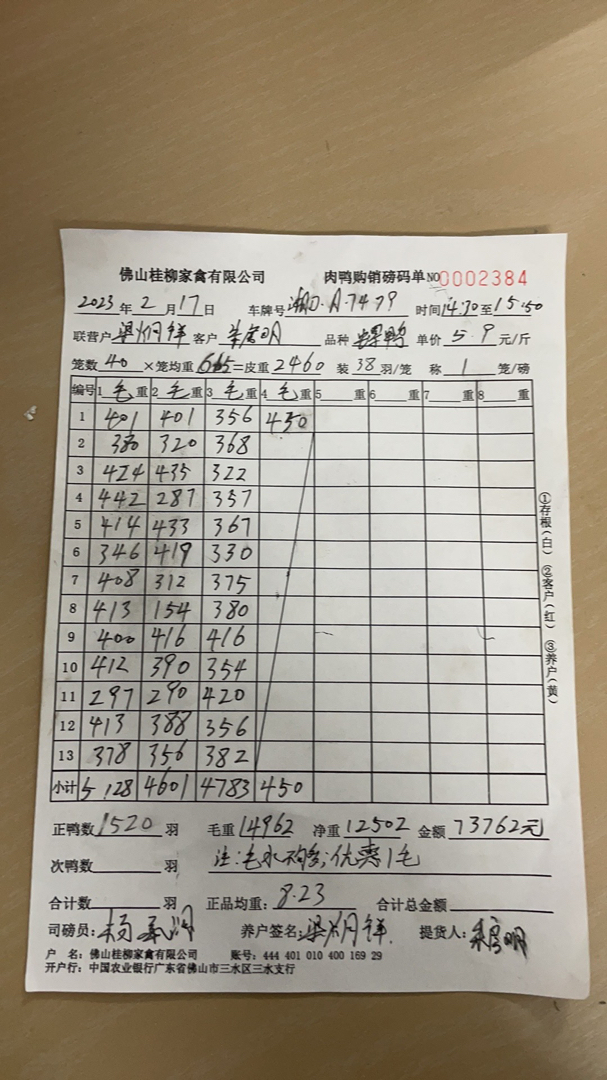 佛山桂柳家禽有限公司 肉鸭购销磅码单 NO 0002384
2023年2月17日 车牌号 湘D·A·7479 时间14:30至15:50
联营户 梁炳祥 客户 品种 螺鸭 单价 5.9 元/斤
笼数 40 ×笼均重 61.5=皮重 2460 装 38 羽/笼 称 1 笼/磅
编号 1 毛 重 2 毛 重 3 毛 重 4 毛 重 5 重 6 重 7 重 8 重
1 401 401 356 450
2 380 320 368
3 424 435 322
4 442 287 357
5 414 433 367
6 346 419 330
7 408 312 375
8 413 154 380
9 400 416 416
10 412 390 354
11 297 290 420
12 413 388 356
13 378 356 382
小计 5128 4601 4783 450
正鸭数 1520 羽 毛重 14962 净重 12502 金额 73762元
次鸭数 羽 注:毛水不够;优惠1毛
合计数 羽 正品均重: 8.23 合计总金额
司磅员: 杨 养户签名: 梁炳祥 提货人:
户 名: 佛山桂柳家禽有限公司 账号: 444 401 010 400 169 29
开户行: 中国农业银行广东省佛山市三水区三水支行
①存根(白) ②客户(红) ③养户(黄)